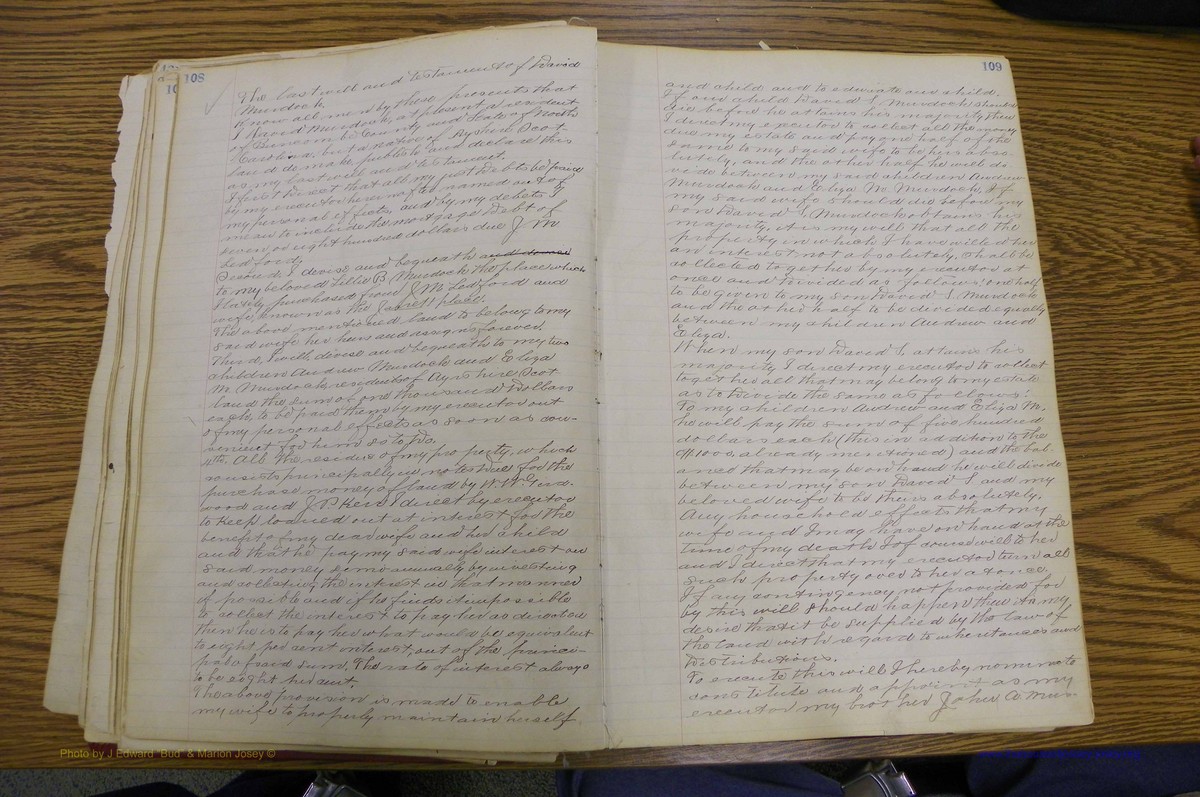 108
The last will and testament of David
Murdock.
Know all men by these presents that
I David Murdock, at present a resident
of Buncombe County and State of North
Carolina, but a native of Ayrshire Scot
land do make publish and declare this
as my last will and testament.
First I direct that all my just debts be paid
by my executor hereinafter named out of
my personal effects, and by my debts I
mean to include the mortgage debt of
seven or eight hundred dollars due J M
Ledford.
Second, I devise and bequeath and devise
to my beloved Lillie B. Murdock the place which
I lately purchased from J M Ledford and
wife, known as the place.
The above mentioned land to belong to my
said wife her heirs and assigns forever.
Third, I will devise and bequeath to my two
children Andrew Murdock and Eliza
M. Murdock, residents of Ayrshire Scot
land the sum of one thousand dollars
each, to be paid them by my executor out
of my personal effects as soon as con-
venient for him so to do.
4th. All the residue of my property, which
consists principally in notes due for the
purchase money of land by W. W.
wood and J. P. Kerr I direct by executor
to keep loaned out at interest for the
benefit of my dear wife and her child
and that he pay my said wife interest on
said money semi-annually by investing
and collecting the interest in that manner
if possible and if he finds it impossible
to collect the interest to pay her as directed
then he is to pay her what would be equivalent
to eight per cent interest, out of the princi-
pal of said sum, The rate of interest always
to be eight per cent.
The above provision is made to enable
my wife to properly maintain herself
109
and child and to educate our child.
If our child David S. Murdock should
die before he attains his majority then
I direct my executor to collect all the money
due my estate and pay one half of the
same to my said wife to be hers abso-
lutely, and the other half he will di-
vide between my said children Andrew
Murdock and Eliza M. Murdock. If
my said wife should die before my
son David S. Murdock obtains his
majority, it is my will that all the
property in which I have willed her
an interest not absolutely, shall be
collected together by my executor at
once and divided as follows: one half
to be given to my son David S. Murdock
and the other half to be divided equally
between my children Andrew and
Eliza.
When my son David S. attains his
majority I direct my executor to collect
together all that may belong to my estate
as to divide the same as follows:
To my children Andrew and Eliza M.
he will pay the sum of five hundred
dollars each (this in addition to the
$1000. already mentioned) and the bal-
ance that may be on hand he will divide
between my son David S. and my
beloved wife to be theirs absolutely.
Any household effects that my
wife and I may have on hand at the
time of my death I of course will to her
and I direct that my executor turn all
such property over to her at once.
If any contingency not provided for
by this will should happen then it is my
desire that it be supplied by the law of
the land with regard to inheritances and
distributions.
To execute this will I hereby nominate
constitute and appoint as my
executor my brother John A Mur-
Photo by J Edward "Bud" & Marion Josey ©